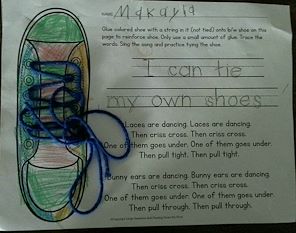 NAME Makayla
Glue colored shoe with a string in it (not tied) onto b/w shoe on this
page to reinforce shoe. Only use a small amount of glue. Trace the
words. Sing the song and practice tying the shoe.
I can tie
my own shoes
Laces are dancing. Laces are dancing.
Then criss cross. Then criss cross.
One of them goes under. One of them goes under.
Then pull tight. Then pull tight.
Bunny ears are dancing. Bunny ears are dancing.
Then criss cross. Then criss cross.
One of them goes under. One of them goes under.
Then pull through. Then pull through.